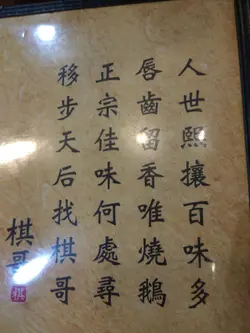 人世熙攘百味多
唇齒留香唯燒鵝
正宗佳味何處尋
移步天后找棋哥
棋哥
棋